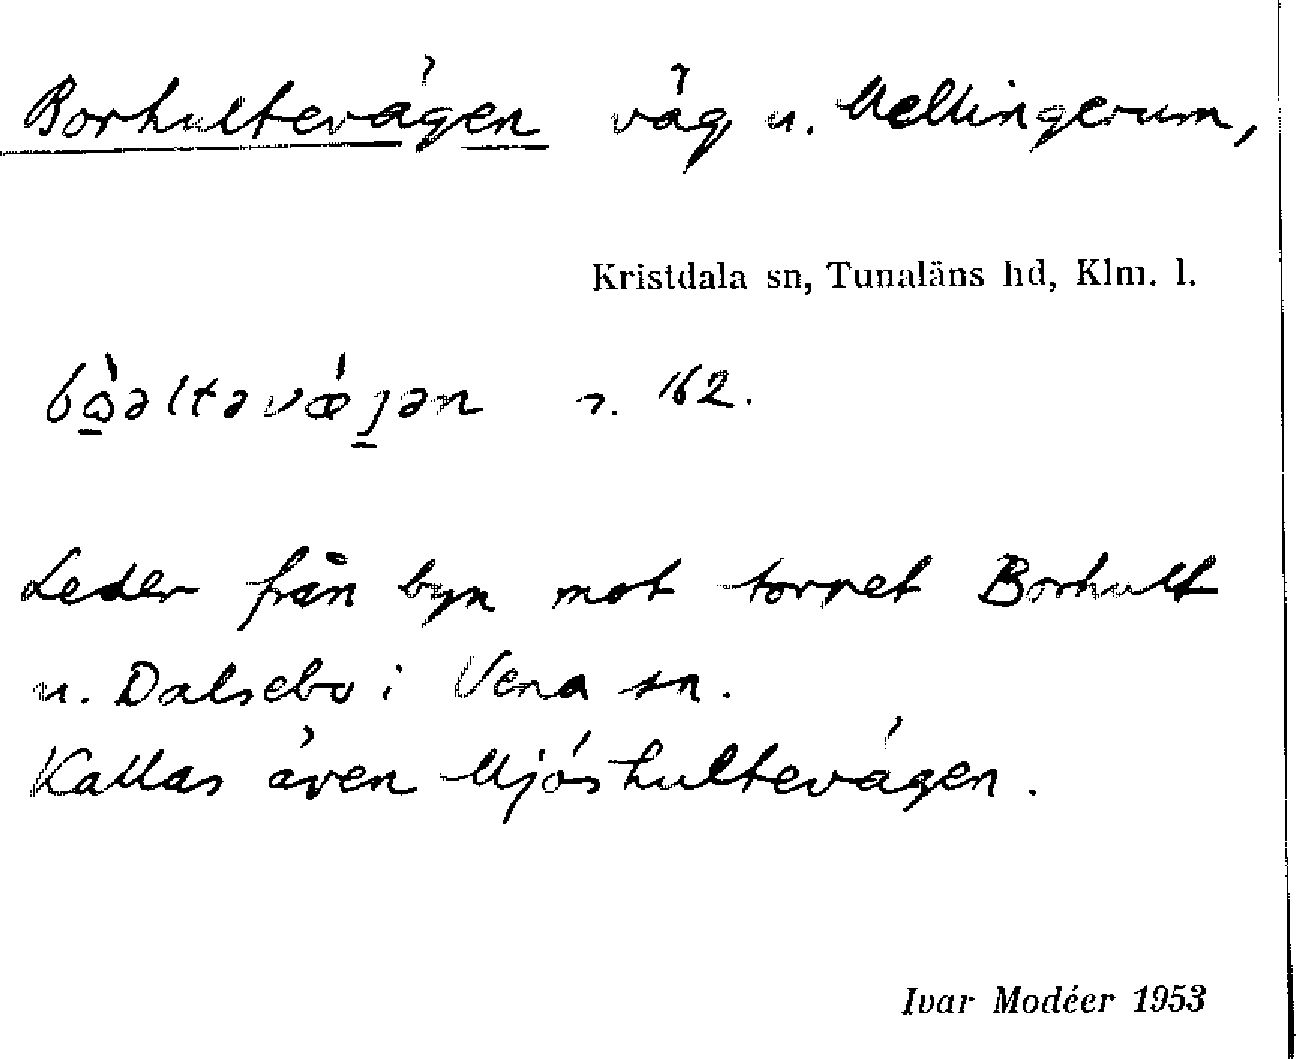 Borhultevägen väg u. Mellingerum,
Kristdala sn, Tunaläns hd, Klm. l.
162.
Leder från byn mot torpet Borhult
u. Dalsebo i Vena sn.
Kallas även Mjöshultevägen.
Ivar Modéer 1953